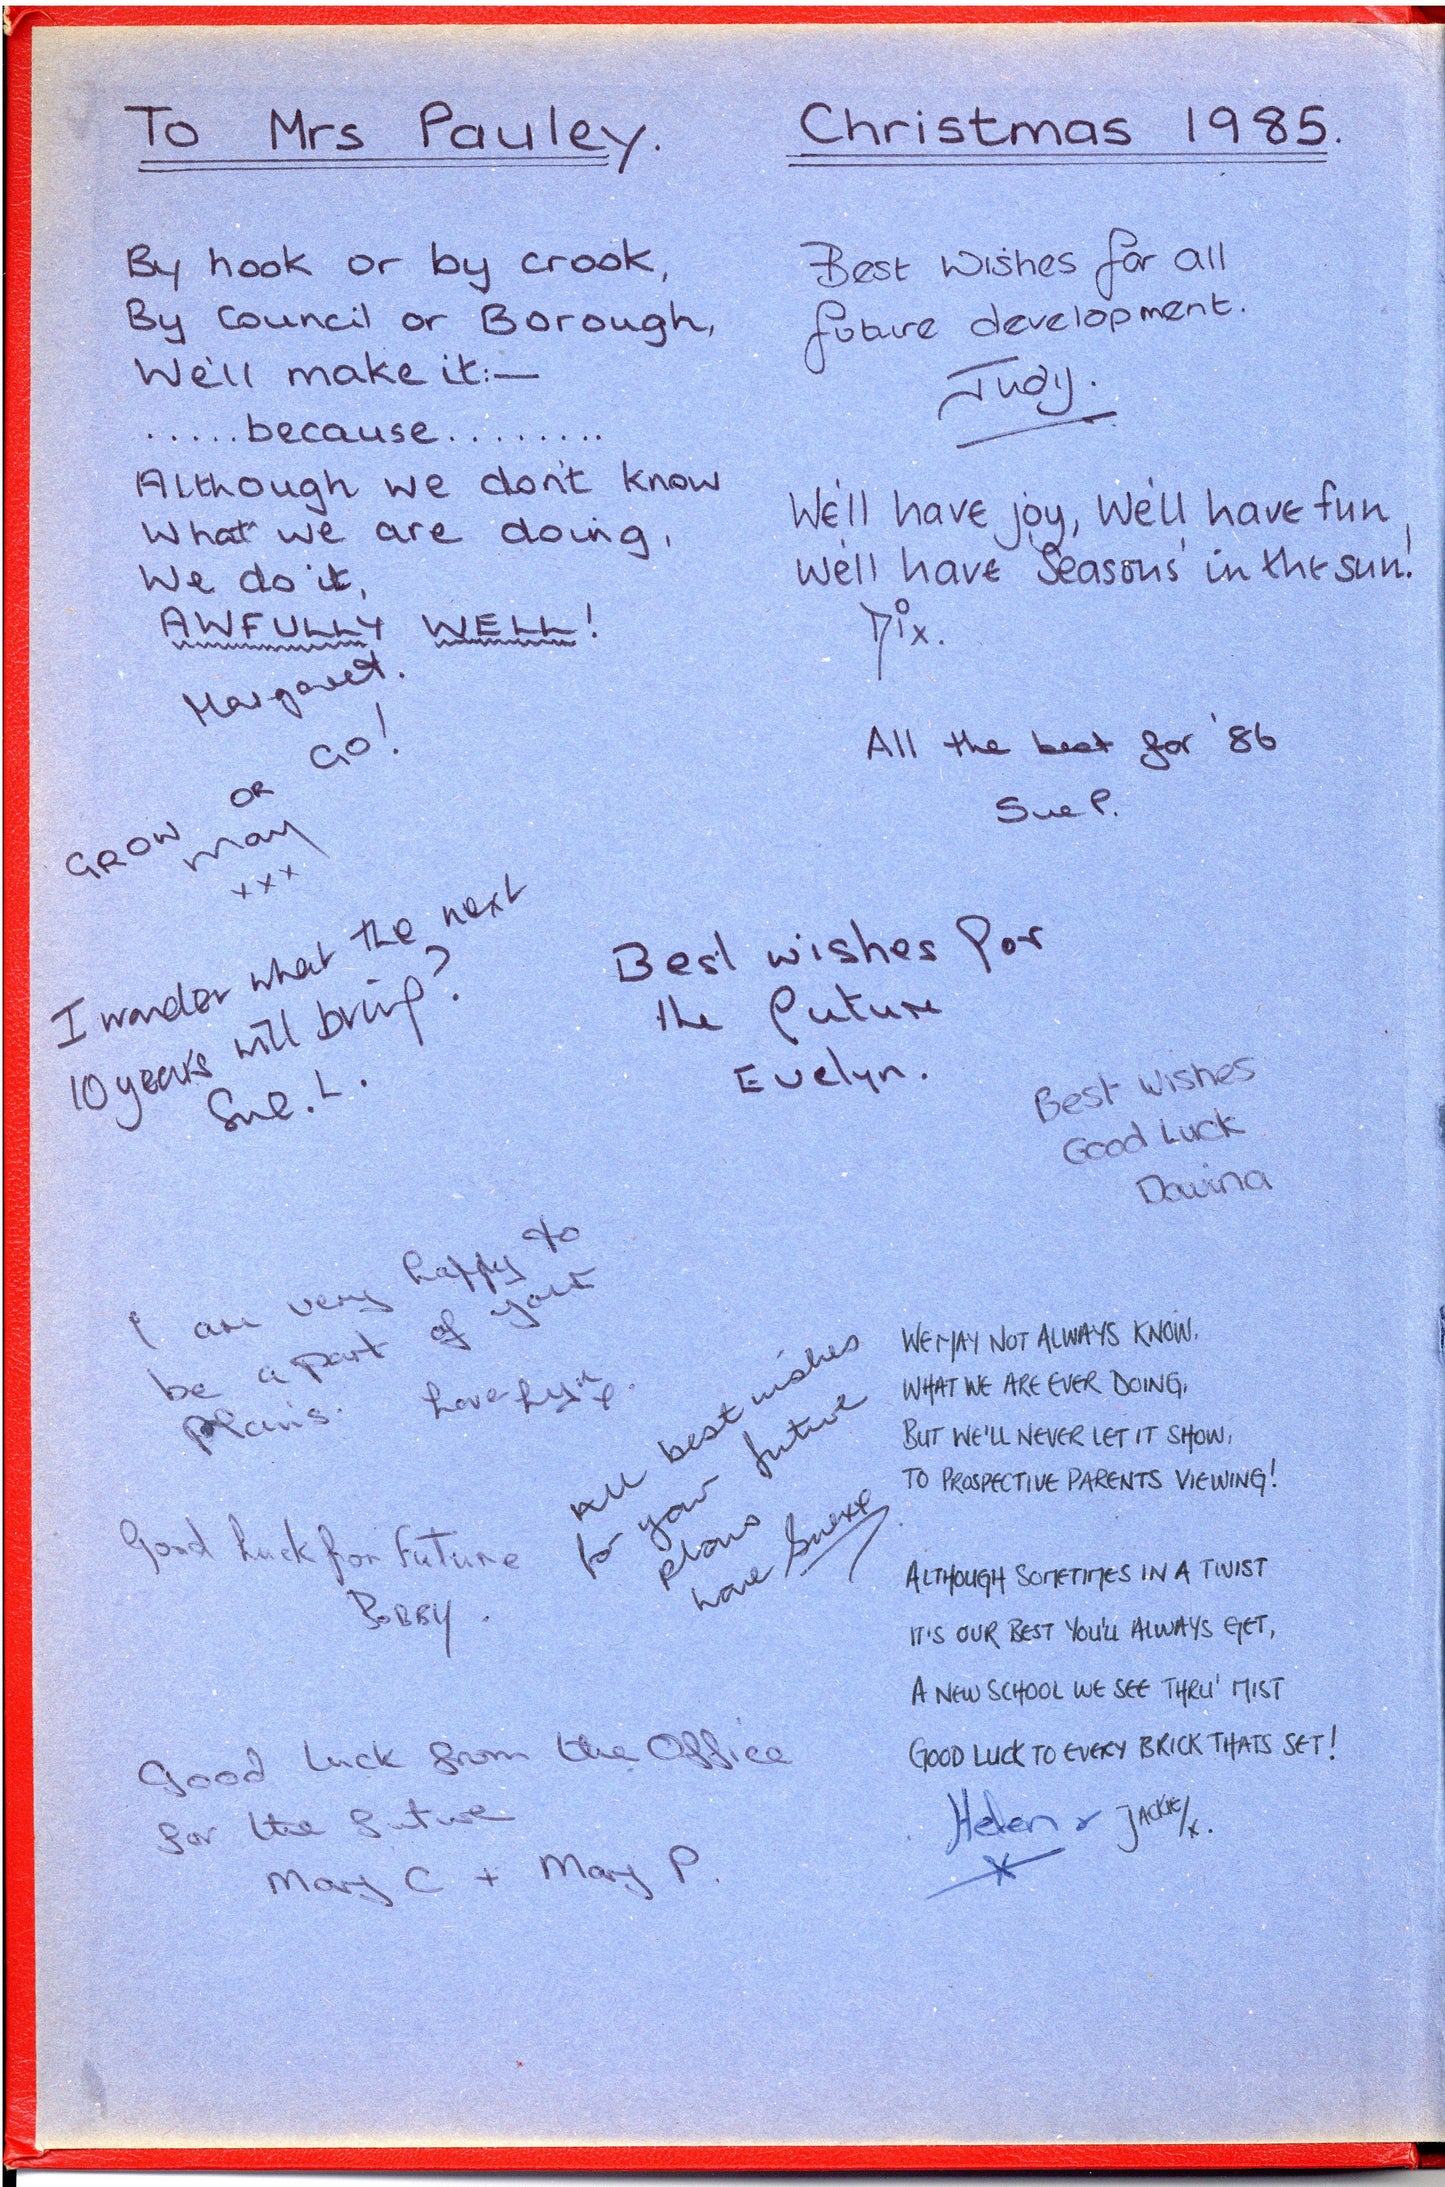 To Mrs Pauley.
Christmas 1985.
By hook or by crook,
By Council or Borough,
We'll make it:—
.....because.........
Although we don't know
What we are doing,
We do it,
AWFULLY WELL!
Margaret.
Best Wishes for all
future development.
Judy.
We'll have joy, We'll have fun,
We'll have 'Seasons' in the sun!
Pix.
GROW OR GO!
May
xxx
All the best for '86
Sue P.
I wonder what the next
10 years will bring?
Sue. L.
Best wishes for
the future
Evelyn.
Best Wishes
Good Luck
Davina
I am very happy to
be a part of your
plans. Love Lyn
All best wishes
for your future
plans
love Sue xx
Good Luck for Future
BOBBY.
Good luck from the Office
for the future
Mary C + Mary P.
WE MAY NOT ALWAYS KNOW,
WHAT WE ARE EVER DOING,
BUT WE'LL NEVER LET IT SHOW,
TO PROSPECTIVE PARENTS VIEWING!
ALTHOUGH SOMETIMES IN A TWIST
IT'S OUR BEST YOU'LL ALWAYS GET,
A NEW SCHOOL WE SEE THRU' MIST
GOOD LUCK TO EVERY BRICK THATS SET!
Helen & JACKIE/x.
x